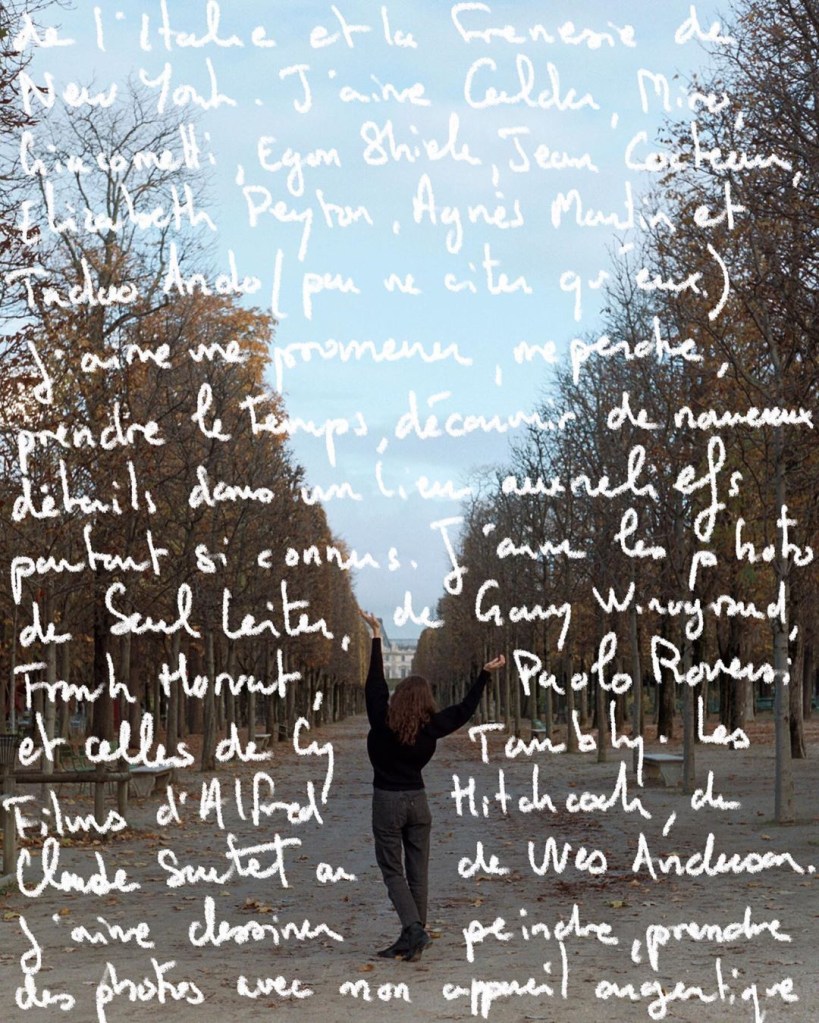 de l'Italie et la Frenesie de
New York. J'aime Calder, Miro,
Giacometti, Egon Shiele, Jean Cocteau,
Elizabeth Peyton, Agnès Martin et
Tadao Ando (pour ne citer qu'eux)
J'aime me promener, me perdre,
prendre le temps, découvrir de nouveaux
détails dans un lieu aux reliefs
pourtant si connus. J'aime les photo
de Saul Leiter, de Gary Winogrand,
Frank Horvat, Paolo Roversi
et celles de Cy Twombly. Les
Films d'Alfred Hitchcock, de
Claude Sautet ou de Wes Anderson.
J'aime dessiner peindre, prendre
des photos avec mon appareil argentique